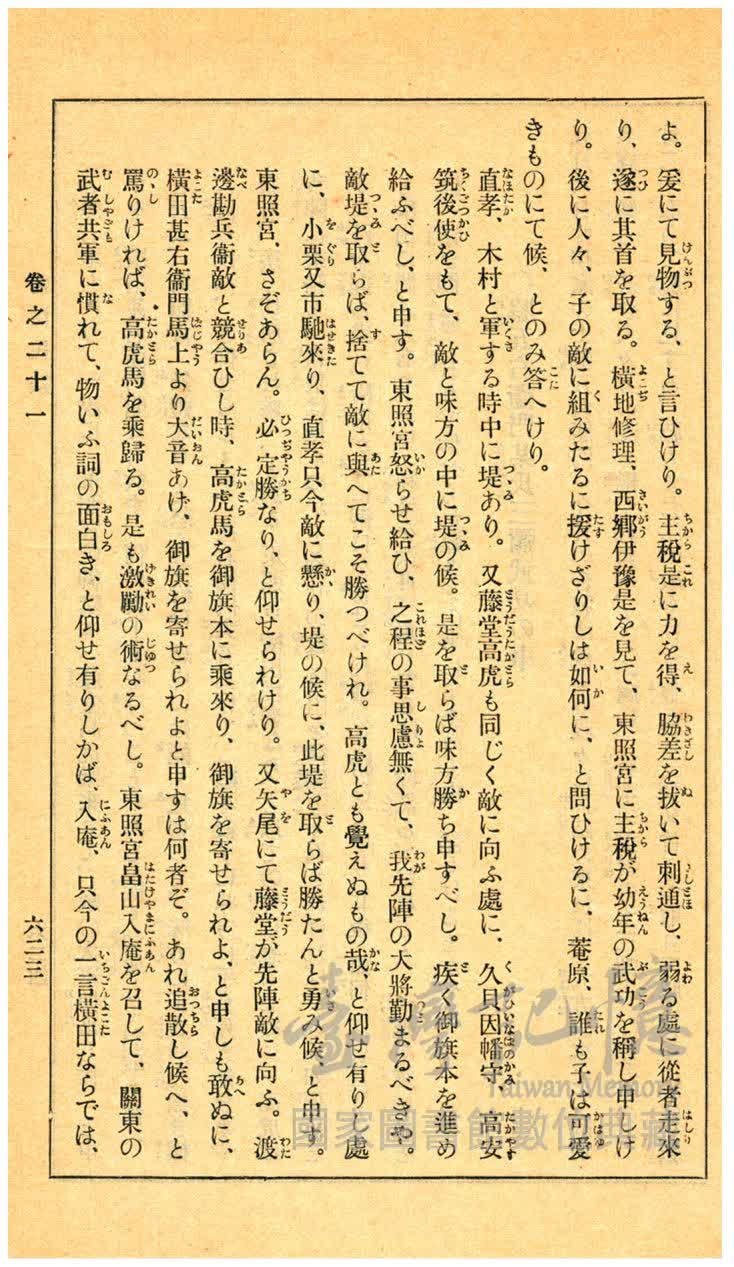 よ。爰にて見物する、と言ひけり。主稅是に力を得、脇差を拔いて刺通し、弱る處に從者走來
り、遂に其首を取る。橫地修理、西鄕伊豫是を見て、東照宮に主稅が幼年の武功を稱し申しけ
り。後に人々、子の敵に組みたるに援けざりしは如何に、と問ひけるに、菴原、誰も子は可愛
きものにて候、とのみ答へけり。
直孝、木村と軍する時中に堤あり。又藤堂高虎も同じく敵に向ふ處に、久貝因幡守、高安
筑後使をもて、敵と味方の中に堤の候。是を取らば味方勝ち申すべし。疾く御旗本を進め
給ふべし、と申す。東照宮怒らせ給ひ、之程の事思慮無くて、我先陣の大將勤まるべきや。
敵堤を取らば、捨てて敵に與へてこそ勝つべけれ。高虎とも覺えぬもの哉、と仰せ有りし處
に、小栗又市馳來り、直孝只今敵に懸り、堤の候に、此堤を取らば勝たんと勇み候、と申す。
東照宮、さぞあらん。必定勝なり、と仰せられけり。又矢尾にて藤堂が先陣敵に向ふ。渡
邊勘兵衞敵と競合ひし時、高虎馬を御旗本に乘來り、御旗を寄せられよ、と申しも敢ぬに、
橫田甚右衞門馬上より大音あげ、御旗を寄せられよと申すは何者ぞ。あれ追散し候へ、と
罵りければ、高虎馬を乘歸る。是も激勵の術なるべし。東照宮畠山入庵を召して、關東の
武者共軍に慣れて、物いふ詞の面白き、と仰せ有りしかば、入庵、只今の一言橫田ならでは、
卷之二十一
六二三
臺灣記憶
Taiwan Memory
國家圖書館數位典藏